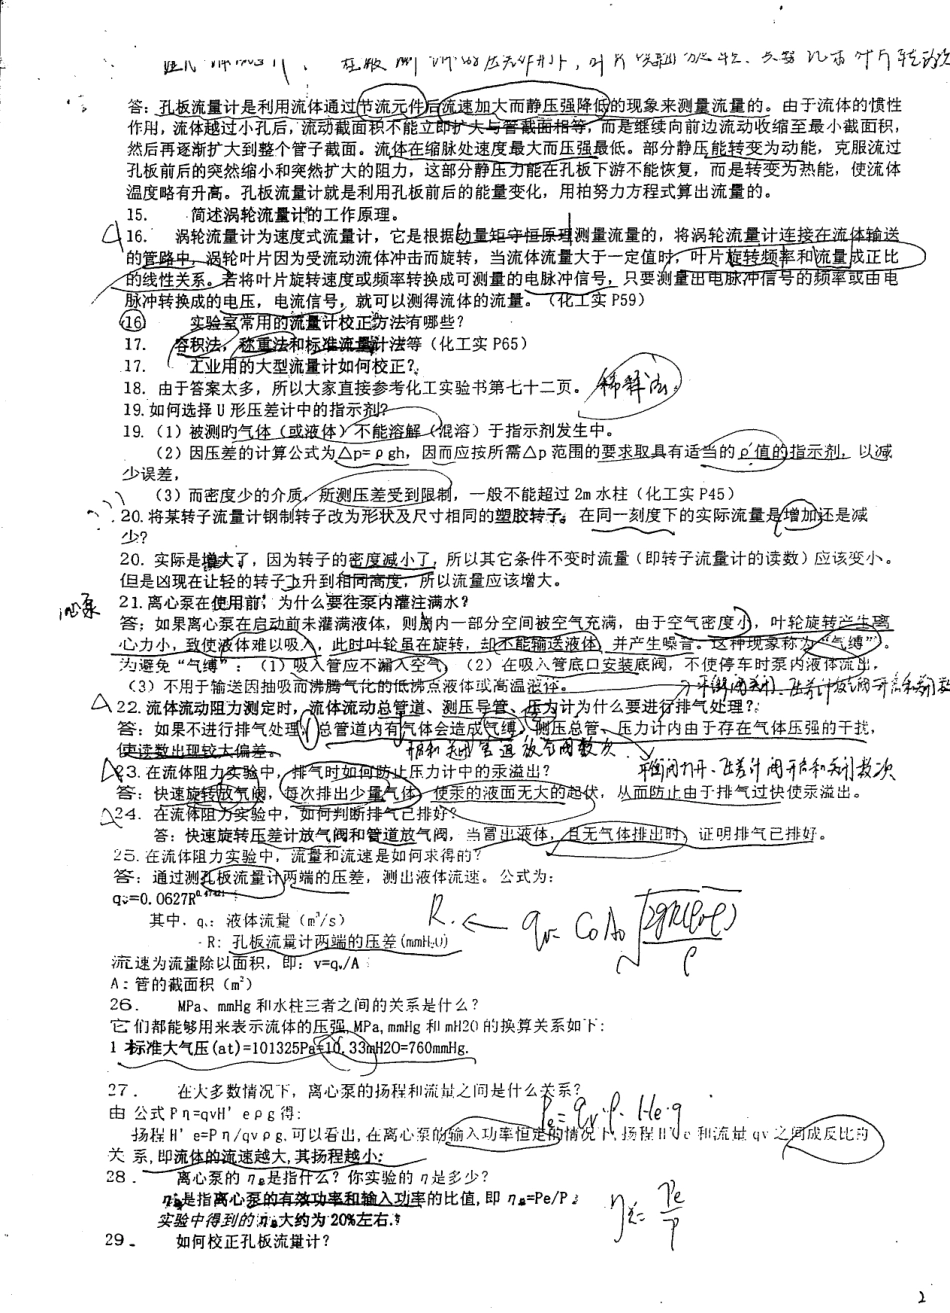 答：孔板流量计是利用流体通过节流元件后流速加大而静压强降低的现象来测量流量的。由于流体的惯性
作用，流体越过小孔后，流动截面积不能立即扩大与管截面相等，而是继续向前边流动收缩至最小截面积，
然后再逐渐扩大到整个管子截面。流体在缩脉处速度最大而压强最低。部分静压能转变为动能，克服流过
孔板前后的突然缩小和突然扩大的阻力，这部分静压力能在孔板下游不能恢复，而是转变为热能，使流体
温度略有升高。孔板流量计就是利用孔板前后的能量变化，用柏努力方程式算出流量的。
15. 简述涡轮流量计的工作原理。
16. 涡轮流量计为速度式流量计，它是根据动量矩守恒原理测量流量的，将涡轮流量计连接在流体输送
的管路中，涡轮叶片因为受流动流体冲击而旋转，当流体流量大于一定值时，叶片旋转频率和流量成正比
的线性关系。若将叶片旋转速度或频率转换成可测量的电脉冲信号，只要测量出电脉冲信号的频率或由电
脉冲转换成的电压，电流信号，就可以测得流体的流量。（化工实 P59）
16 实验室常用的流量计校正方法有哪些？
17. 容积法，称重法和标准流量计法等（化工实 P65）
17. 工业用的大型流量计如何校正？
18. 由于答案太多，所以大家直接参考化工实验书第七十二页。 稀释法
19.如何选择 U 形压差计中的指示剂？
19.（1）被测的气体（或液体）不能溶解（混溶）于指示剂发生中。
（2）因压差的计算公式为△p=ρgh，因而应按所需△p 范围的要求取具有适当的ρ值的指示剂，以减
少误差，
（3）而密度少的介质，所测压差受到限制，一般不能超过 2m 水柱（化工实 P45）
20.将某转子流量计钢制转子改为形状及尺寸相同的塑胶转子。在同一刻度下的实际流量是增加还是减
少？
20. 实际是增大了，因为转子的密度减小了，所以其它条件不变时流量（即转子流量计的读数）应该变小。
但是凶现在让轻的转子上升到相同高度，所以流量应该增大。
21.离心泵在使用前，为什么要往泵内灌注满水？
答：如果离心泵在启动前未灌满液体，则腾内一部分空间被空气充满，由于空气密度小，叶轮旋转产生离
心力小，致使液体难以吸入，此时叶轮虽在旋转，却不能输送液体，并产生噪音。这种现象称为“气缚”。
为避免“气缚”：（1）吸入管应不漏入空气，（2）在吸入管底口安装底阀，不使停车时泵内液体流出，
（3）不用于输送因抽吸而沸腾气化的低沸点液体或高温液体。
22.流体流动阻力测定时，流体流动总管道、测压导管、压力计为什么要进行排气处理？
答：如果不进行排气处理，总管道内有气体会造成气缚，测压总管、压力计内由于存在气体压强的干扰，
使读数出现较大偏差。
23.在流体阻力实验中，排气时如何防止压力计中的汞溢出？ 平衡阀打开、压差计阀开启和关闭数次
答：快速旋转放气阀，每次排出少量气体，使汞的液面无大的起伏，从而防止由于排气过快使汞溢出。
24. 在流体阻力实验中，如何判断排气已排好？
答：快速旋转压差计放气阀和管道放气阀，当冒出液体，且无气体排出时，证明排气已排好。
25.在流体阻力实验中，流量和流速是如何求得的？
答：通过测孔板流量计两端的压差，测出液体流速。公式为：
其中．qᵥ：液体流量（m³/s）
R：孔板流量计两端的压差（mmH₂O）
流速为流量除以面积，即：v=qᵥ/A
A：管的截面积（m²）
26. MPa、mmHg 和水柱三者之间的关系是什么？
它们都能够用来表示流体的压强，MPa, mmHg 和 mH2O 的换算关系如下：
1 标准大气压(at)=101325Pa=10.33mH2O=760mmHg.
27. 在大多数情况下，离心泵的扬程和流量之间是什么关系？
由 公式 Pη=qvH’eρg 得： Pe=qv·ρ·He·g
扬程 H’e=Pη/qvρg，可以看出，在离心泵的输入功率恒定的情况下，扬程 H’e 和流量 qv 之间成反比的
关系，即流体的流速越大，其扬程越小；
28. 离心泵的 η是指什么？你实验的 η是多少？
η是指离心泵的有效功率和输入功率的比值，即 η=Pe/P
实验中得到的η大约为 20%左右.
29. 如何校正孔板流量计？
2